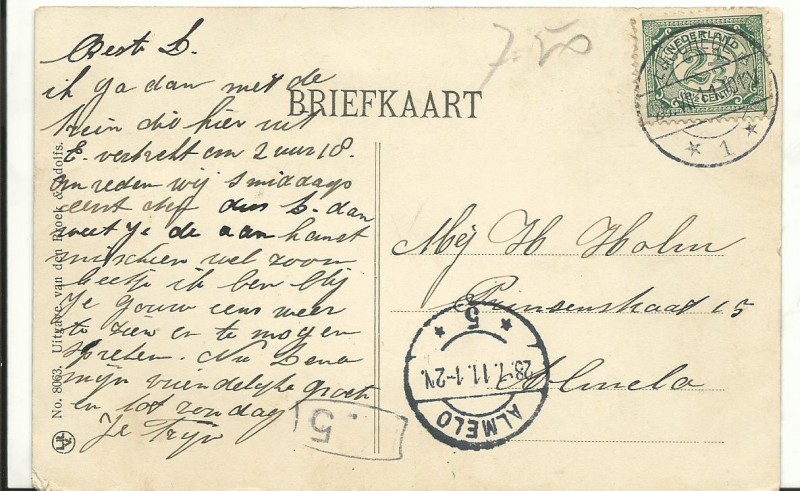 Beste L.
ik ga dan met de
trein die hier uit
E. vertrekt om 2 uur 18.
om reden wij smiddags
eerst dus L. dan
weet je de aan komst
misschien wel zoon
beetje ik ben blij
Je gouw eens weer
te zien en te mogen
spreken. Nu Lena
mijn vriendelijke groet
en tot zondag
Je Trijn
7.50
BRIEFKAART
NEDERLAND
2½
CENT
1
Mej H Holm
Prinsenstraat 15
Almelo
ALMELO
28.7.11.1-2N.
5
.5
No. 8063. Uitgave van den Broek & Adolfs.